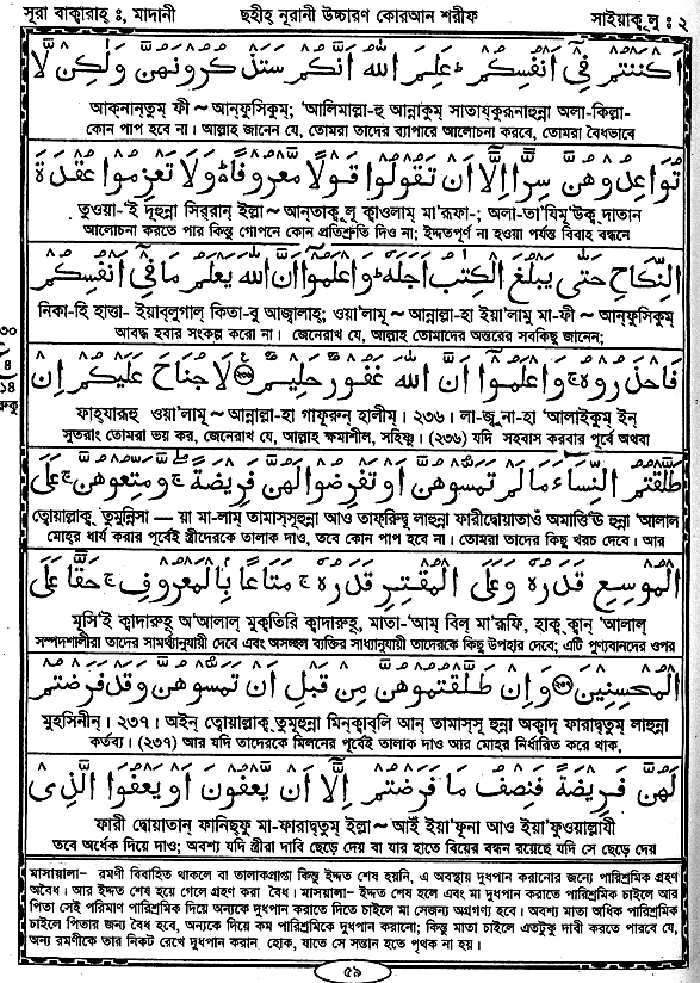 সূরা বাক্বারাহ্ ঃ, মাদানী ছহীহ্ নূরানী উচ্চারণ কোরআন শরীফ সাইয়াক্বূলু : ২
اَكْنَنْتُمْ فِيْٓ اَنْفُسِكُمْ ؕ عَلِمَ اللّٰهُ اَنَّكُمْ سَتَذْكُرُوْنَهُنَّ وَلٰكِنْ لَّا
আক্নান্তুম্ ফী ~ আন্ফুসিকুম্; 'আলিমাল্লা-হু আন্নাকুম্ সাতায্কুরূনাহুন্না অলা-কিল্লা-
কোন পাপ হবে না। আল্লাহ জানেন যে, তোমরা তাদের ব্যাপারে আলোচনা করবে, তোমরা বৈধভাবে
تُوَاعِدُوْهُنَّ سِرًّا اِلَّآ اَنْ تَقُوْلُوْا قَوْلًا مَّعْرُوْفًا ؕ وَلَا تَعْزِمُوْا عُقْدَةَ
তুওয়া-'ই দূহুন্না সির্রান্ ইল্লা ~ আন্তাক্বূলূ ক্বাওলাম্ মা'রূফা-; অলা-তা'যিমূ'উক্ব্ দাতান
আলোচনা করতে পার কিন্তু গোপনে কোন প্রতিশ্রুতি দিও না; ইদ্দতপূর্ণ না হওয়া পর্যন্ত বিবাহ বন্ধনে
النِّكَاحِ حَتّٰى يَبْلُغَ الْكِتٰبُ اَجَلَهٗ ؕ وَاعْلَمُوْٓا اَنَّ اللّٰهَ يَعْلَمُ مَا فِيْٓ اَنْفُسِكُمْ
নিকা-হি হাত্তা- ইয়াব্লুগাল্ কিতা-বু আজ্বালাহূ; ওয়া'লামূ ~ আন্নাল্লা-হা ইয়া'লামু মা-ফী ~ আন্ফুসিকুম্
আবদ্ধ হবার সংকল্প করো না। জেনেরাখ যে, আল্লাহ তোমাদের অন্তরের সবকিছু জানেন;
৩০
৪
১৪
রুকূ
فَاحْذَرُوْهُ ۚ وَاعْلَمُوْٓا اَنَّ اللّٰهَ غَفُوْرٌ حَلِيْمٌ ﴿٢٣٥﴾ لَا جُنَاحَ عَلَيْكُمْ اِنْ
ফাহ্যারূহু ওয়া'লামূ ~ আন্নাল্লা-হা গাফূরুন্ হালীম্। ২৩৬। লা-জু্না-হা 'আলাইকুম্ ইন্
সুতরাং তোমরা ভয় কর, জেনেরাখ যে, আল্লাহ ক্ষমাশীল, সহিষ্ণু। (২৩৬) যদি সহবাস করবার পূর্বে অথবা
طَلَّقْتُمُ النِّسَآءَ مَا لَمْ تَمَسُّوْهُنَّ اَوْ تَفْرِضُوْا لَهُنَّ فَرِيْضَةً ۚ وَّمَتِّعُوْهُنَّ ۚ عَلَى
ত্বোয়াল্লাক্ব্ তুমুন্নিসা — য়া মা-লাম্ তামাস্সূহুন্না আও তাফ্রিদ্বূ লাহুন্না ফারীদ্বোয়াতাওঁ অমাত্তি'উ হুন্না 'আলাল
মোহর ধার্য করার পূর্বেই স্ত্রীদেরকে তালাক দাও, তবে কোন পাপ হবে না। তোমরা তাদের কিছু খরচ দেবে। আর
الْمُوْسِعِ قَدَرُهٗ وَعَلَى الْمُقْتِرِ قَدَرُهٗ ۚ مَتَاعًۢا بِالْمَعْرُوْفِ ۚ حَقًّا عَلَى
মূসি'ই ক্বাদারুহূ অ'আলাল্ মুক্বতিরি ক্বাদারুহূ, মাতা-'আম্ বিল্ মা'রূফি, হাক্ব্ ক্বান্ 'আলাল্
সম্পদশালীরা তাদের সামর্থ্যানুযায়ী দেবে এবং অসচ্ছল ব্যক্তির সাধ্যানুযায়ী তাদেরকে কিছু উপহার দেবে; এটি পুণ্যবানদের ওপর
الْمُحْسِنِيْنَ ﴿٢٣٦﴾ وَاِنْ طَلَّقْتُمُوْهُنَّ مِنْ قَبْلِ اَنْ تَمَسُّوْهُنَّ وَقَدْ فَرَضْتُمْ
মুহসিনীন্। ২৩৭। অইন্ ত্বোয়াল্লাক্ব্ তুমূহুন্না মিন্ক্বাব্লি আন্ তামাস্সূ হুন্না অক্বাদ্ ফারাদ্বতুম্ লাহুন্না
কর্তব্য। (২৩৭) আর যদি তাদেরকে মিলনের পূর্বেই তালাক দাও আর মোহর নির্ধারিত করে থাক,
لَهُنَّ فَرِيْضَةً فَنِصْفُ مَا فَرَضْتُمْ اِلَّآ اَنْ يَّعْفُوْنَ اَوْ يَعْفُوَا الَّذِيْ
ফারী দ্বোয়াতান্ ফানিছ্ফু মা-ফারাদ্বতুম্ ইল্লা ~ আইঁ ইয়া'ফূনা আও ইয়া'ফুওয়াল্লাযী
তবে অর্ধেক দিয়ে দাও; অবশ্য যদি স্ত্রীরা দাবি ছেড়ে দেয় বা যার হাতে বিয়ের বন্ধন রয়েছে যদি সে ছেড়ে দেয়
মাসায়ালা– রমণী বিবাহিত থাকলে বা তালাকপ্রাপ্তা কিন্তু ইদ্দত শেষ হয়নি, এ অবস্থায় দুধপান করানোর জন্যে পারিশ্রমিক গ্রহণ
অবৈধ। আর ইদ্দত শেষ হয়ে গেলে গ্রহণ করা বৈধ। মাসয়ালা– ইদ্দত শেষ হলে এবং মা দুধপান করাতে পারিশ্রমিক চাইলে আর
পিতা সেই পরিমাণ পারিশ্রমিক দিয়ে অন্যকে দুধপান করাতে দিতে চাইলে মা সেজন্য অগ্রগণ্য হবে। অবশ্য মাতা অধিক পারিশ্রমিক
চাইলে পিতার জন্য বৈধ হবে, অন্যকে দিয়ে কম পারিশ্রমিকে দুধপান করানো; কিন্তু মাতা চাইলে এতটুকু দাবী করতে পারবে যে,
অন্য রমণীকে তার নিকট রেখে দুধপান করান হোক, যাতে সে সন্তান হতে পৃথক না হয়।
৫৯